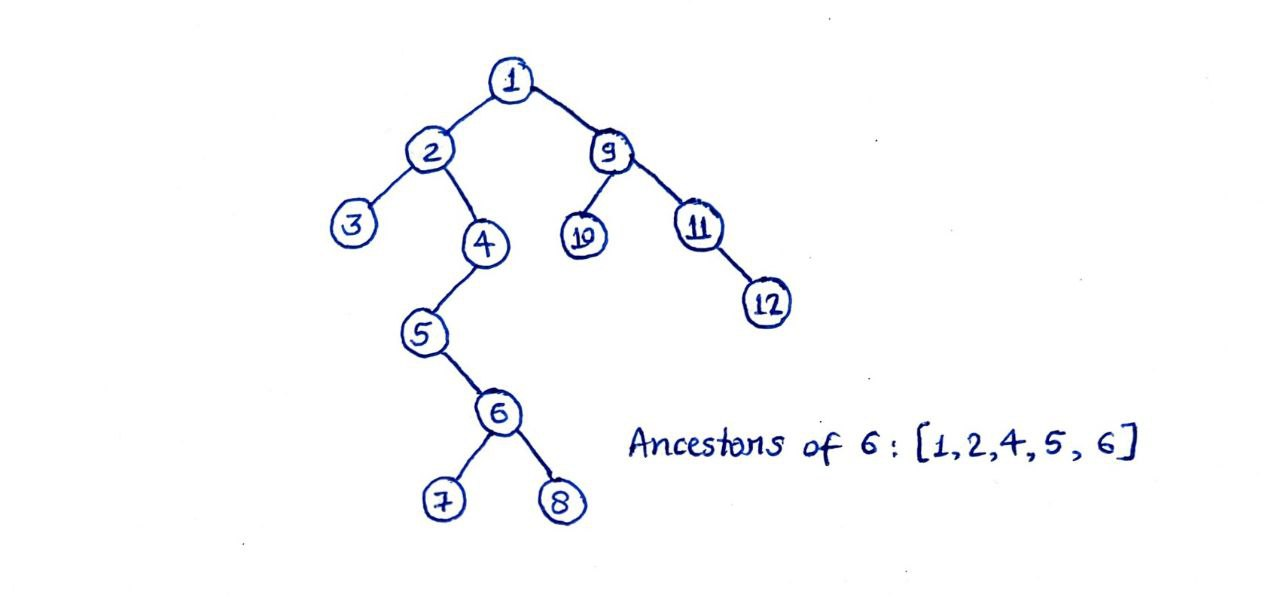 1
2 9
3 4 10 11
12
5
6
Ancestors of 6: [1,2,4,5, 6]
7 8